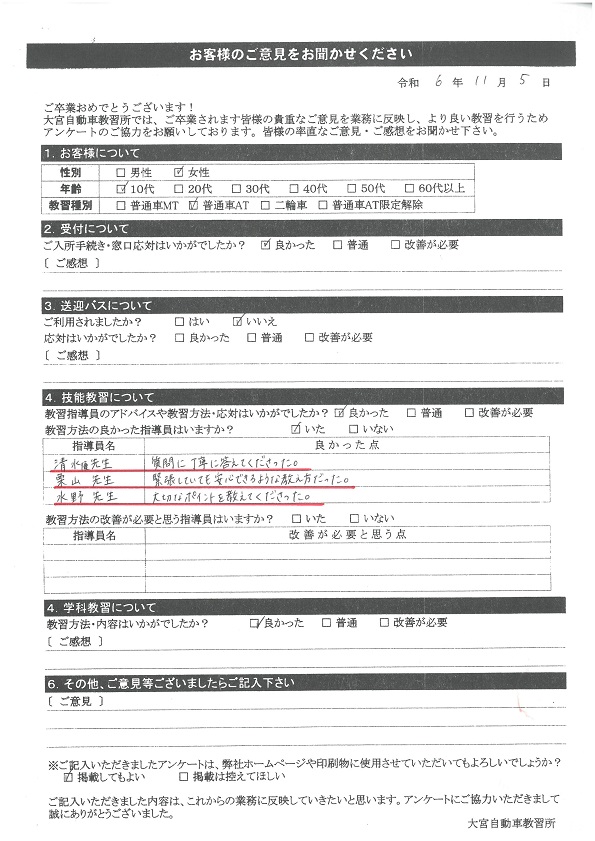 お客様のご意見をお聞かせください
令和 6 年 11 月 5 日
ご卒業おめでとうございます!
大宮自動車教習所では、ご卒業されます皆様の貴重なご意見を業務に反映し、より良い教習を行うため
アンケートのご協力をお願いしております。皆様の率直なご意見・ご感想をお聞かせ下さい。
1. お客様について
性別 □ 男性 ☑ 女性
年齢 ☑ 10代 □ 20代 □ 30代 □ 40代 □ 50代 □ 60代以上
教習種別 □ 普通車MT ☑ 普通車AT □ 二輪車 □ 普通車AT限定解除
2. 受付について
ご入所手続き・窓口応対はいかがでしたか? ☑ 良かった □ 普通 □ 改善が必要
〔 ご感想 〕
3. 送迎バスについて
ご利用されましたか? □ はい ☑ いいえ
応対はいかがでしたか? □ 良かった □ 普通 □ 改善が必要
〔 ご感想 〕
4. 技能教習について
教習指導員のアドバイスや教習方法・応対はいかがでしたか? ☑ 良かった □ 普通 □ 改善が必要
教習方法の良かった指導員はいますか? ☑ いた □ いない
指導員名 良かった点
清水 先生 質問に丁寧に答えてくださった。
栗山 先生 緊張していても安心できるような教え方だった。
水野 先生 大切なポイントを教えてくださった。
教習方法の改善が必要と思う指導員はいますか? □ いた □ いない
指導員名 改善が必要と思う点
4. 学科教習について
教習方法・内容はいかがでしたか? ☑ 良かった □ 普通 □ 改善が必要
〔 ご感想 〕
6. その他、ご意見等ございましたらご記入下さい
〔 ご意見 〕
※ご記入いただきましたアンケートは、弊社ホームページや印刷物に使用させていただいてもよろしいでしょうか?
☑ 掲載してもよい □ 掲載は控えてほしい
ご記入いただきました内容は、これからの業務に反映していきたいと思います。アンケートにご協力いただきまして
誠にありがとうございました。
大宮自動車教習所